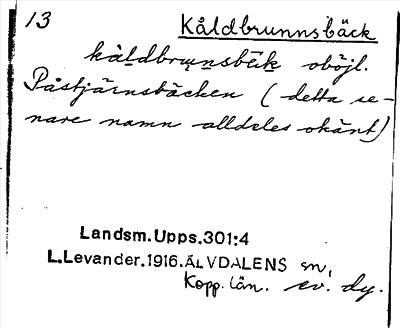 13 Kåldbrunnsbäck
kåldbrunnsbäk oböjl.
Påstjärnsbäcken (detta se-
nare namn alldeles okänt)
Landsm.Upps.301:4
L.Levander.1916.ÄLVDALENS sn,
Kopp. län. ev. dy.